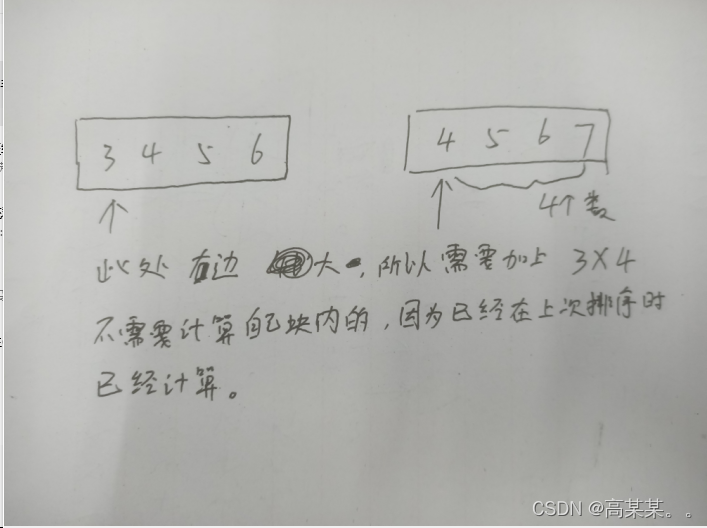 3 4 5 6
4 5 6 7
4个数
此处右边大,所以需要加上 3×4
不需要计算自己块内的,因为已经在上次排序时
已经计算。
CSDN @高某某。。